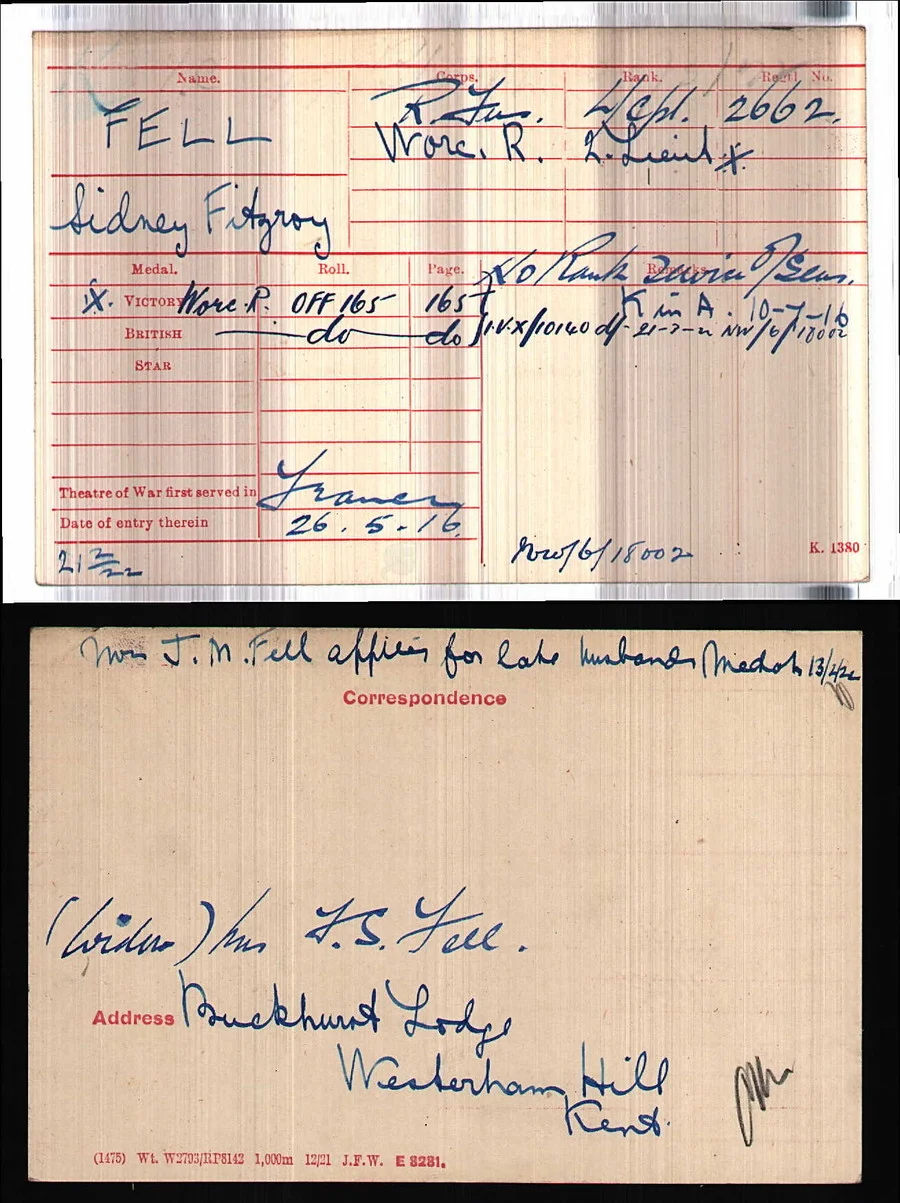 Name. Corps. Rank. Regtl. No.
FELL R. Fus. L/Cpl. 2662.
Worc. R. 2. Lieut X
Sidney Fitzroy
Medal. Roll. Page. Remarks.
No Rank
X. VICTORY Worc. R. OFF 165 165 K in A. 10-7-16
BRITISH do do I.V.X/10140 d/- 21-2-22 NW/6/18002
STAR
Theatre of War first served in France
Date of entry therein 26.5-16.
21 2/22 NW/6/18002 K. 1380
Mrs J. M. Fell applies for late husbands Medals 13/2/22
Correspondence
(Widow) Mrs F. S. Fell.
Address Buckhurst Lodge
Westerham Hill
Kent.
(1475) Wt. W2793/RP8142 1,000m 12/21 J.F.W. E 8281.